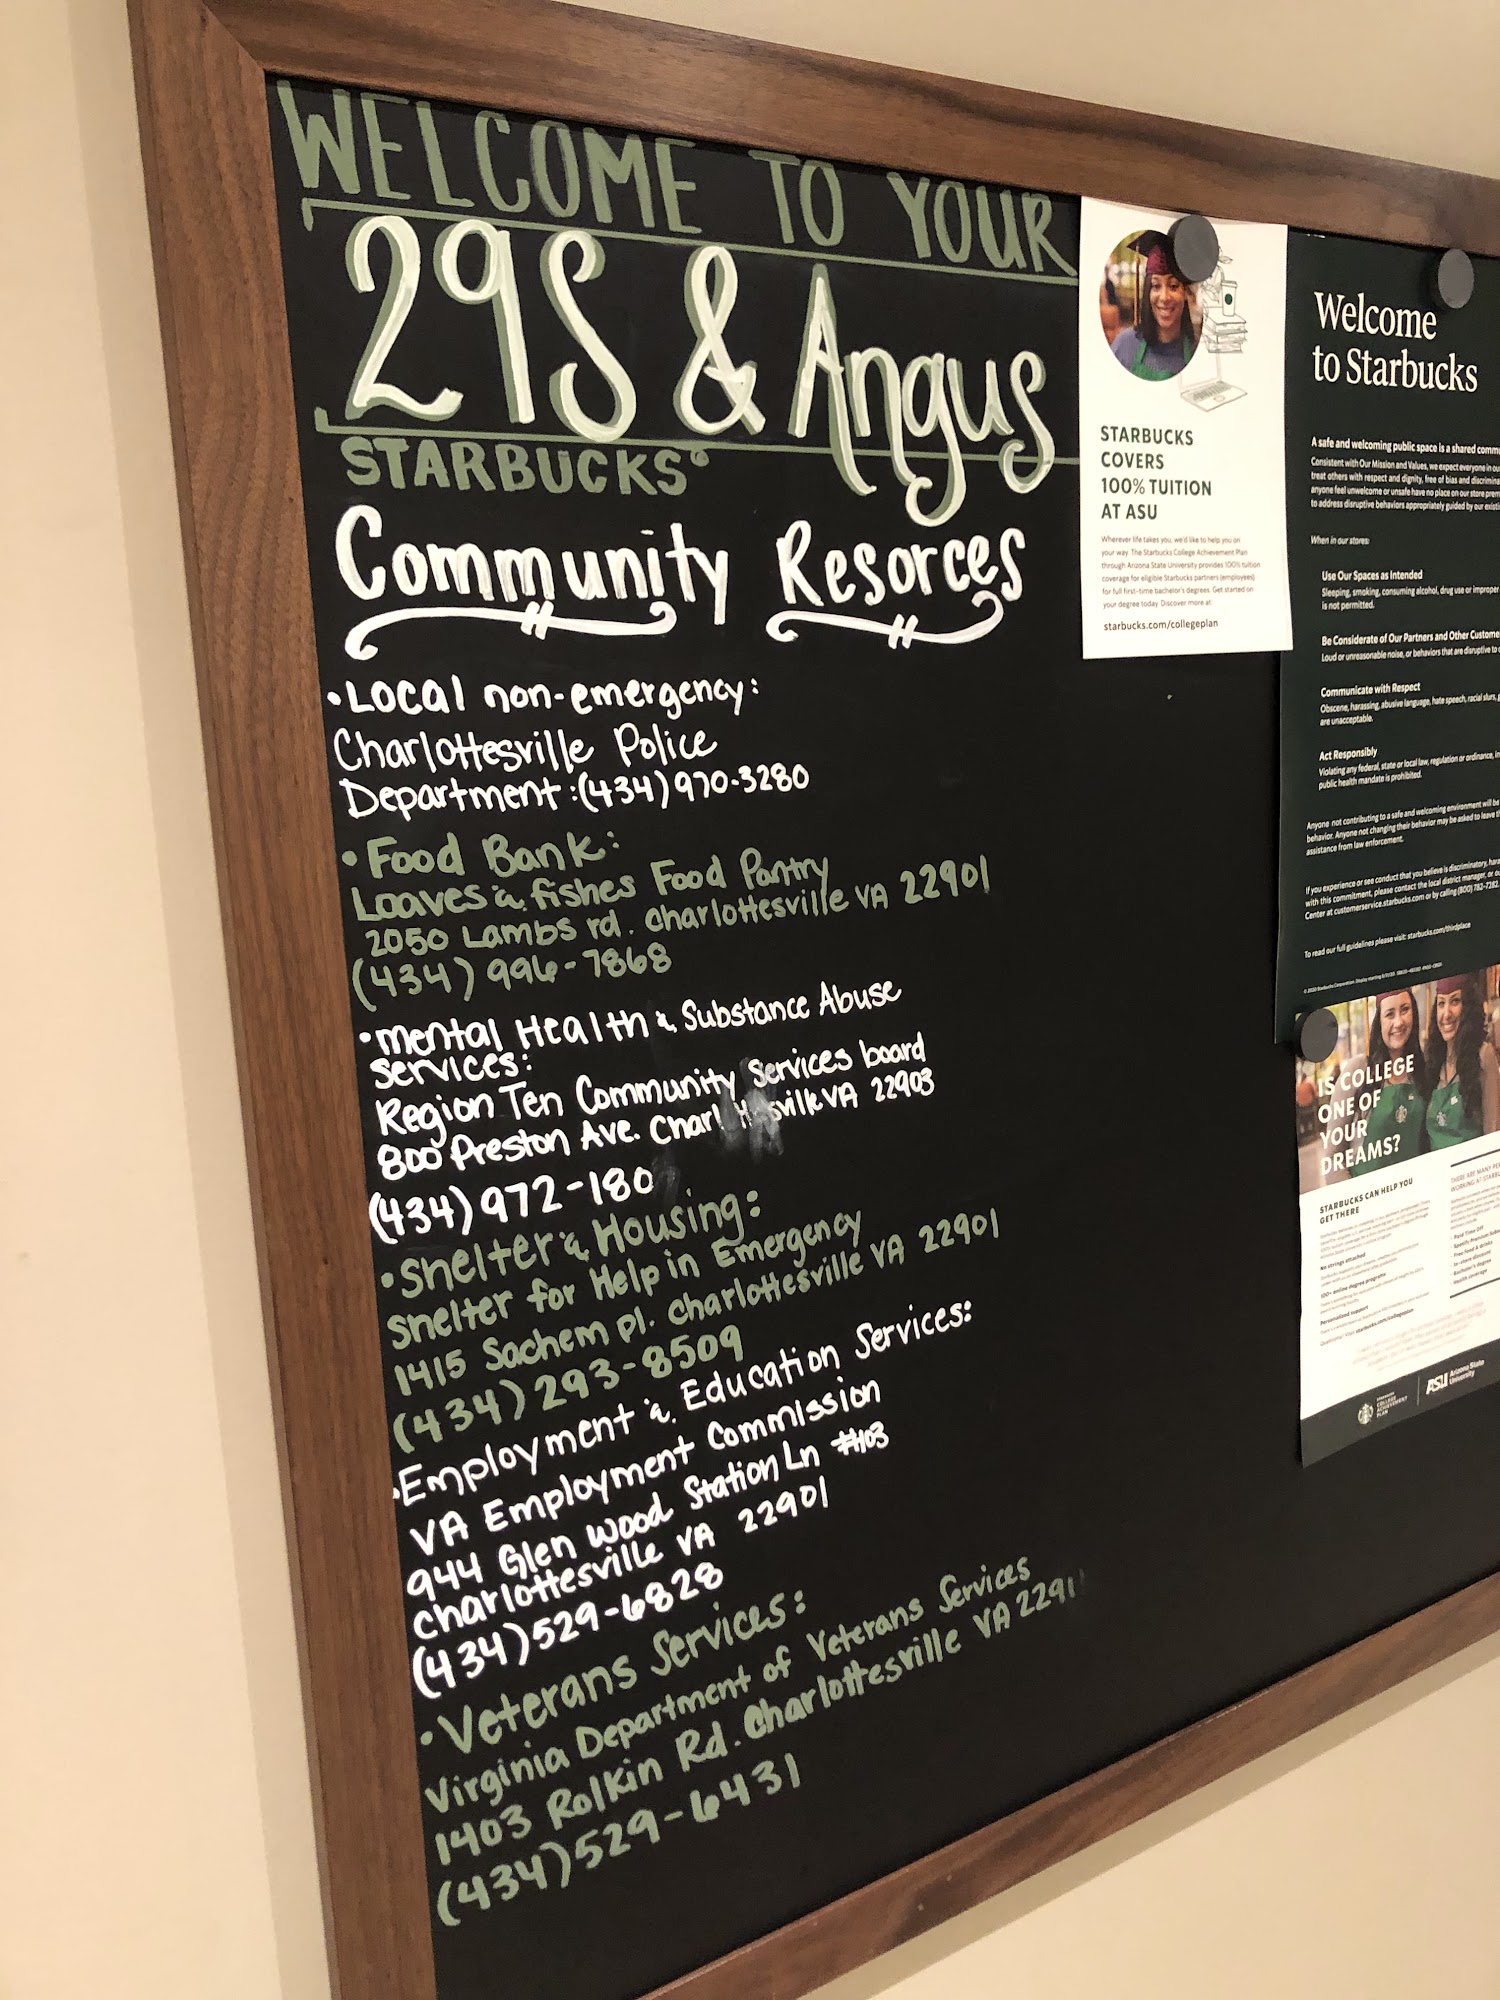 WELCOME TO YOUR
29S & Angus
STARBUCKS®
Community Resorces
•Local non-emergency:
Charlottesville Police
Department:(434)970-3280
•Food Bank:
Loaves & fishes Food Pantry
2050 Lambs rd. Charlottesville VA 22901
(434) 996-7868
•mental Health & Substance Abuse
services:
Region Ten Community Services board
800 Preston Ave. VA 22903
(434)972-180
•Shelter & Housing:
Shelter for Help in Emergency
1415 Sachem pl. Charlottesville VA 22901
(434)293-8509
•Employment & Education Services:
VA Employment Commission
944 Glen wood Station Ln #103
Charlottesville VA 22901
(434)529-6828
•Veterans Services:
Virginia Department of Veterans Services
1403 Rolkin Rd. Charlottesville VA 2291
(434)529-6431
STARBUCKS
COVERS
100% TUITION
AT ASU
Wherever life takes you, we'd like to help you on
your way. The Starbucks College Achievement Plan
through Arizona State University provides 100% tuition
coverage for eligible Starbucks partners (employees)
for full first-time bachelor's degrees. Get started on
your degree today. Discover more at
starbucks.com/collegeplan
Welcome
to Starbucks
A safe and welcoming public space is a shared
Consistent with Our Mission and Values, we expect everyone in
treat others with respect and dignity, free of bias and
anyone feel unwelcome or unsafe have no place on our store
to address disruptive behaviors appropriately guided by our
When in our stores:
Use Our Spaces as Intended
Sleeping, smoking, consuming alcohol, drug use or improper
is not permitted.
Be Considerate of Our Partners and Other
Loud or unreasonable noise, or behaviors that are disruptive to
Communicate with Respect
Obscene, harassing, abusive language, hate speech, racial slurs,
are unacceptable.
Act Responsibly
Violating any federal, state or local law, regulation or ordinance,
public health mandate is prohibited.
Anyone not contributing to a safe and welcoming environment will be
behavior. Anyone not changing their behavior may be asked to leave
assistance from law enforcement.
If you experience or see conduct that you believe is discriminatory,
with this commitment, please contact the local district manager, or
Center at customerservice.starbucks.com or by calling (800) 782-7282.
To read our full guidelines please visit: starbucks.com/thirdplace
IS COLLEGE
ONE OF
YOUR
DREAMS?
STARBUCKS CAN HELP YOU
GET THERE
No strings attached
100+ online degree programs
Personalized support
THERE ARE MANY
WORKING AT
Paid Time Off
Spotify Premium
Free food & drinks
In-store discount
Bachelor's degree
Health coverage
STARBUCKS
COLLEGE
ACHIEVEMENT
PLAN
ASU Arizona State
University